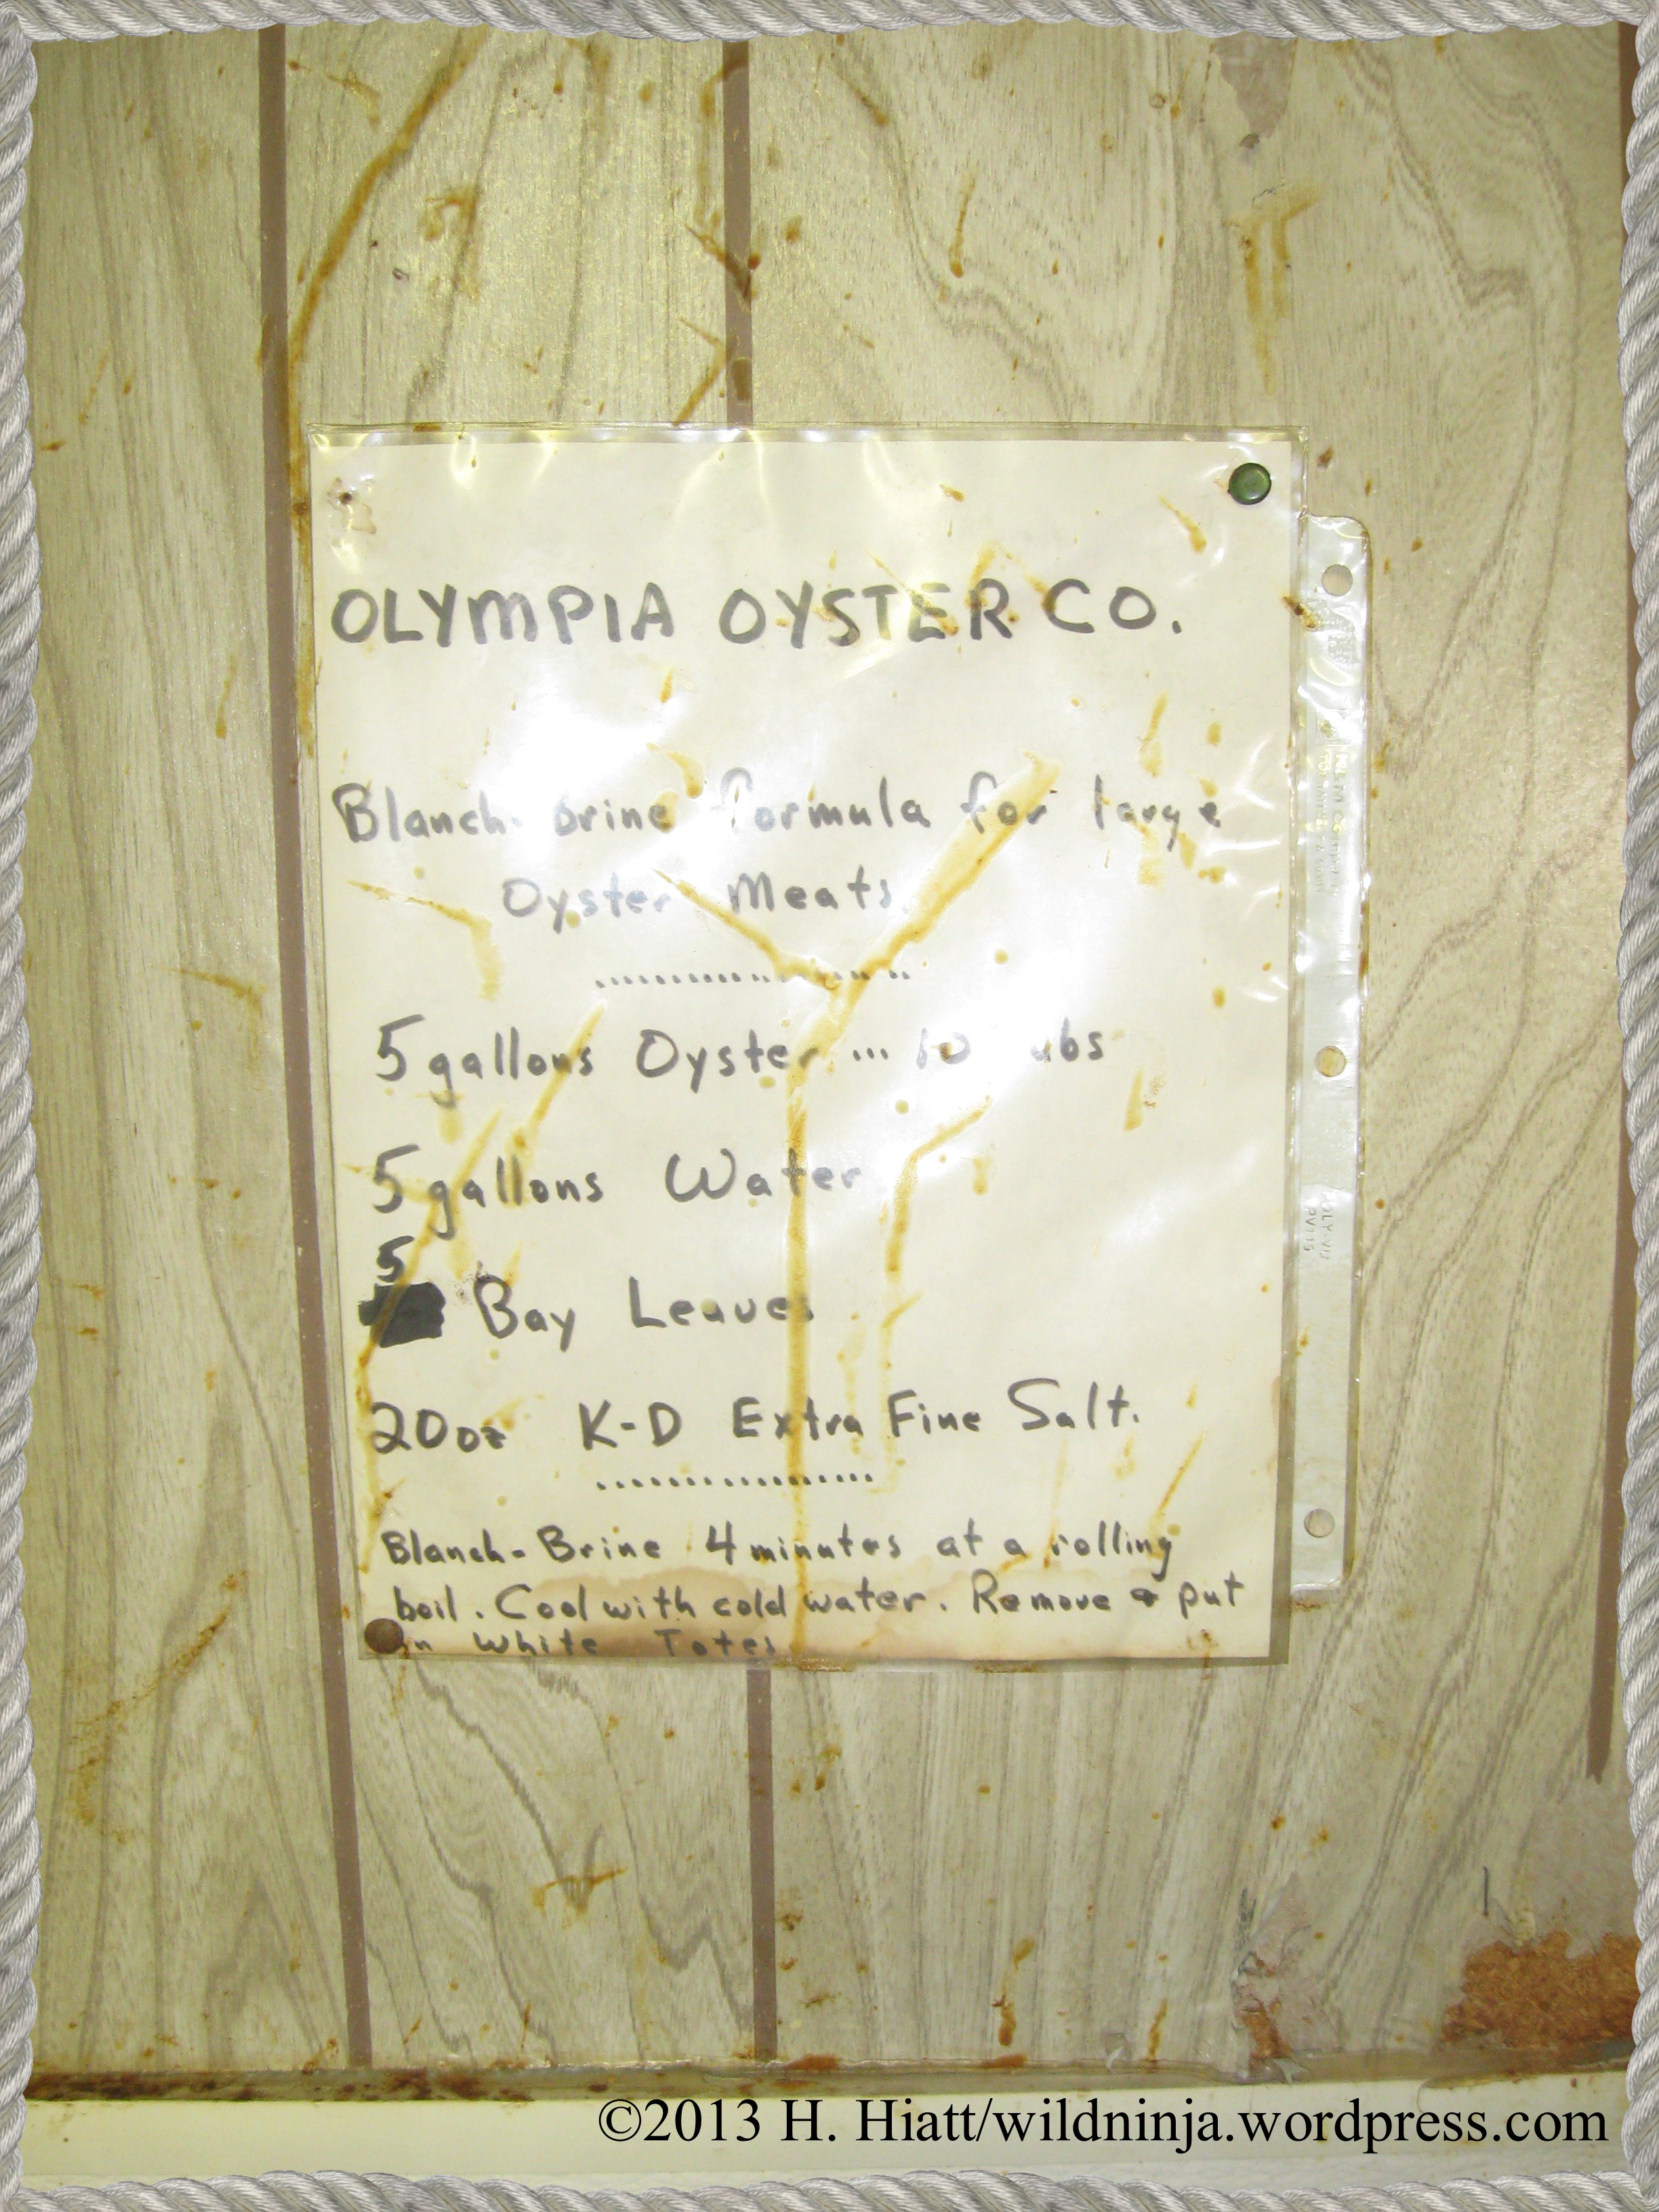 OLYMPIA OYSTER CO.
Blanch-Brine formula for large
Oyster Meats
5 gallons Oyster ... 10
5 gallons Water
5
Bay Leaves
20oz K-D Extra Fine Salt.
Blanch-Brine 4 minutes at a rolling
boil. Cool with cold water. Remove & put
in White Totes
©2013 H. Hiatt/wildninja.wordpress.com